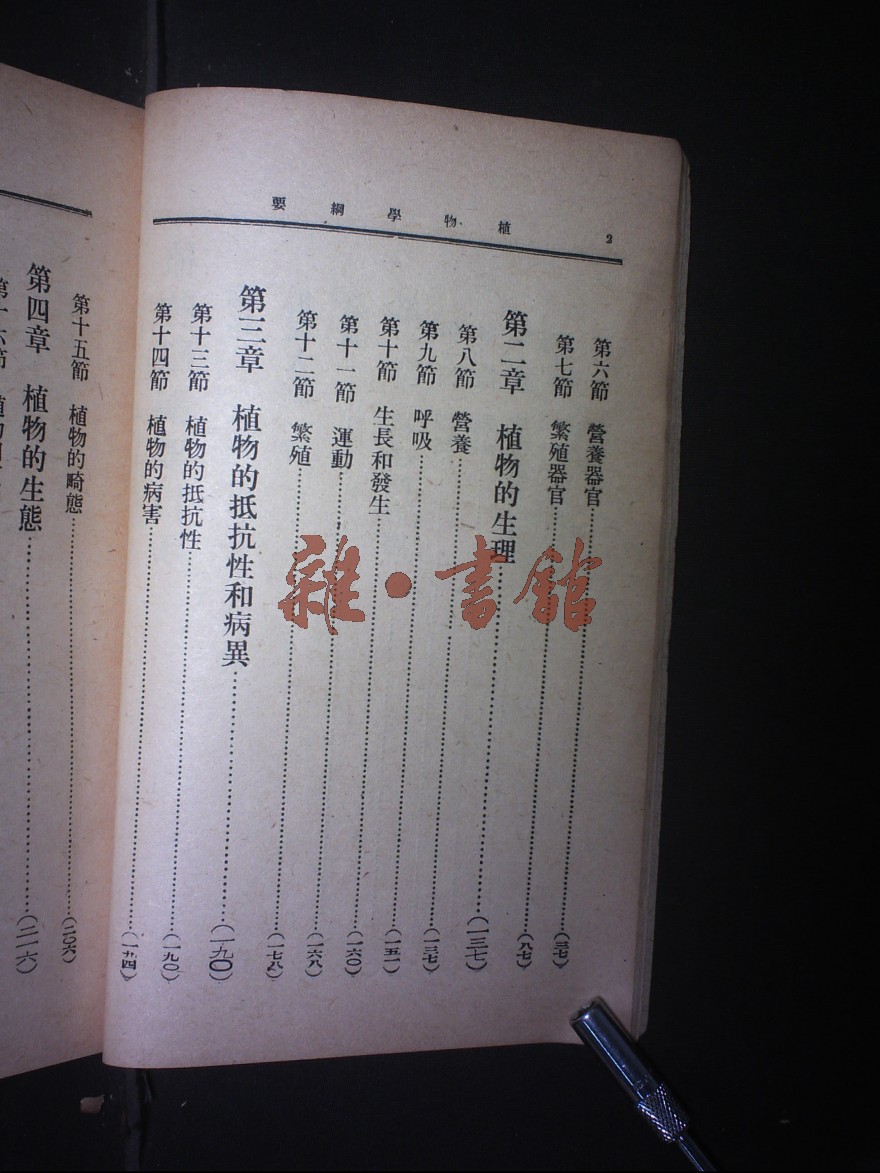 2 植物學綱要
第六節 營養器官……(三七)
第七節 繁殖器官……(八七)
第二章 植物的生理……(一三七)
第八節 營養……(一三七)
第九節 呼吸……(一五一)
第十節 生長和發生……(一六〇)
第十一節 運動……(一六八)
第十二節 繁殖……(一七八)
第三章 植物的抵抗性和病異……(一九〇)
第十三節 植物的抵抗性……(一九〇)
第十四節 植物的病害……(一九四)
第十五節 植物的畸態……(二〇六)
第四章 植物的生態……(二一六)
雜·書館